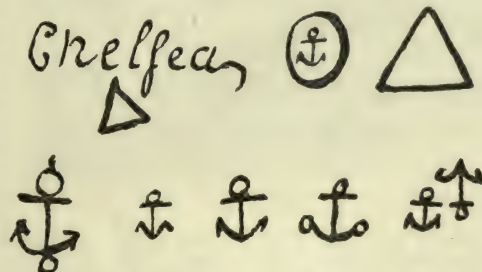 Chelſea